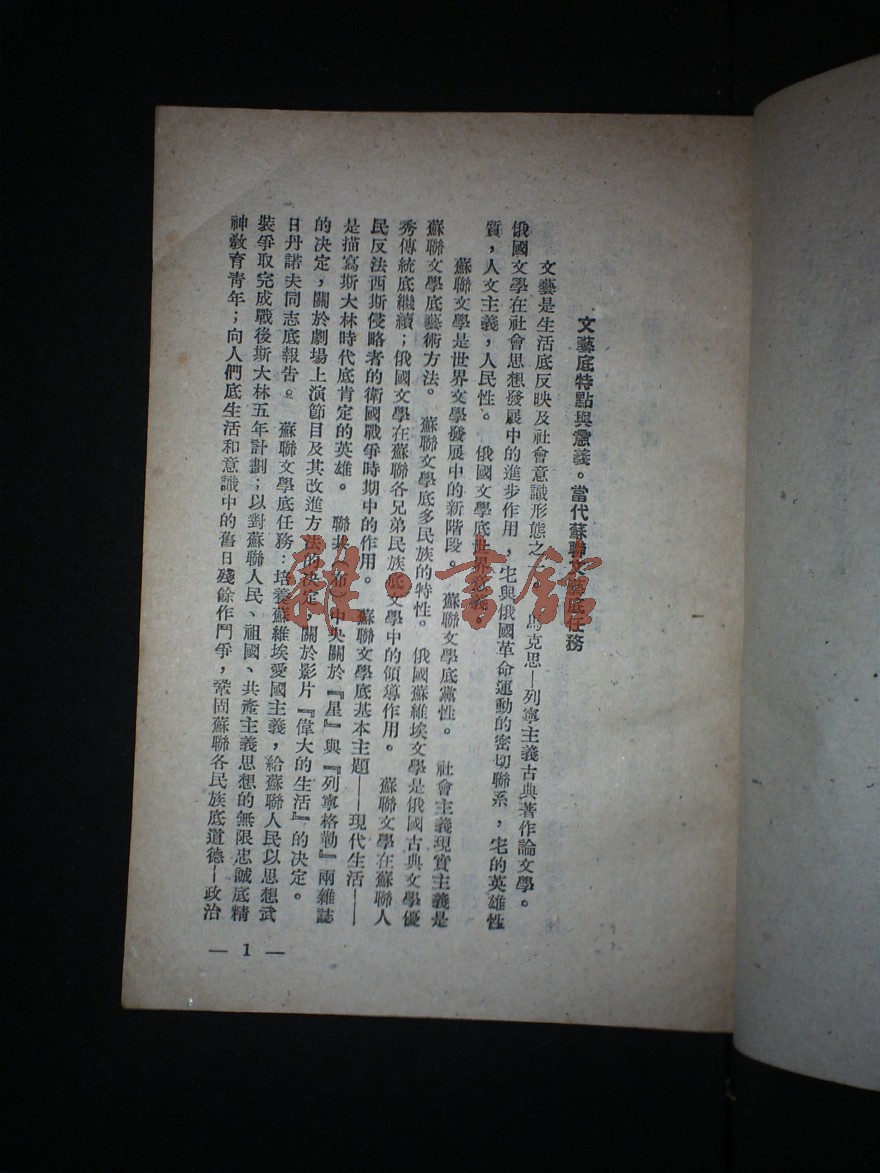 文藝底特點與意義。當代蘇聯文藝底任務
文藝是生活底反映及社會意識形態之一。馬克思—列寧主義古典著作論文學。
俄國文學在社會思想發展中的進步作用，它與俄國革命運動的密切聯系，它的英雄性
質，人文主義，人民性。俄國文學底世界意義。
蘇聯文學是世界文學發展中的新階段。蘇聯文學底黨性。社會主義現實主義是
蘇聯文學底藝術方法。蘇聯文學底多民族的特性。俄國蘇維埃文學是俄國古典文學優
秀傳統底繼續；俄國文學在蘇聯各兄弟民族底文學中的領導作用。蘇聯文學在蘇聯人
民反法西斯侵略者的衛國戰爭時期中的作用。蘇聯文學底基本主題——現代生活——
是描寫斯大林時代底肯定的英雄。聯共（布）中央關於『星』與『列寧格勒』兩雜誌
的決定，關於劇場上演節目及其改進方法的決定，關於影片『偉大的生活』的決定。
日丹諾夫同志底報告。蘇聯文學底任務：培養蘇維埃愛國主義，給蘇聯人民以思想武
裝爭取完成戰後斯大林五年計劃；以對蘇聯人民、祖國、共產主義思想的無限忠誠底精
神教育青年；向人們底生活和意識中的舊日殘餘作鬥爭，鞏固蘇聯各民族底道德—政治
— 1 —
雜·書館